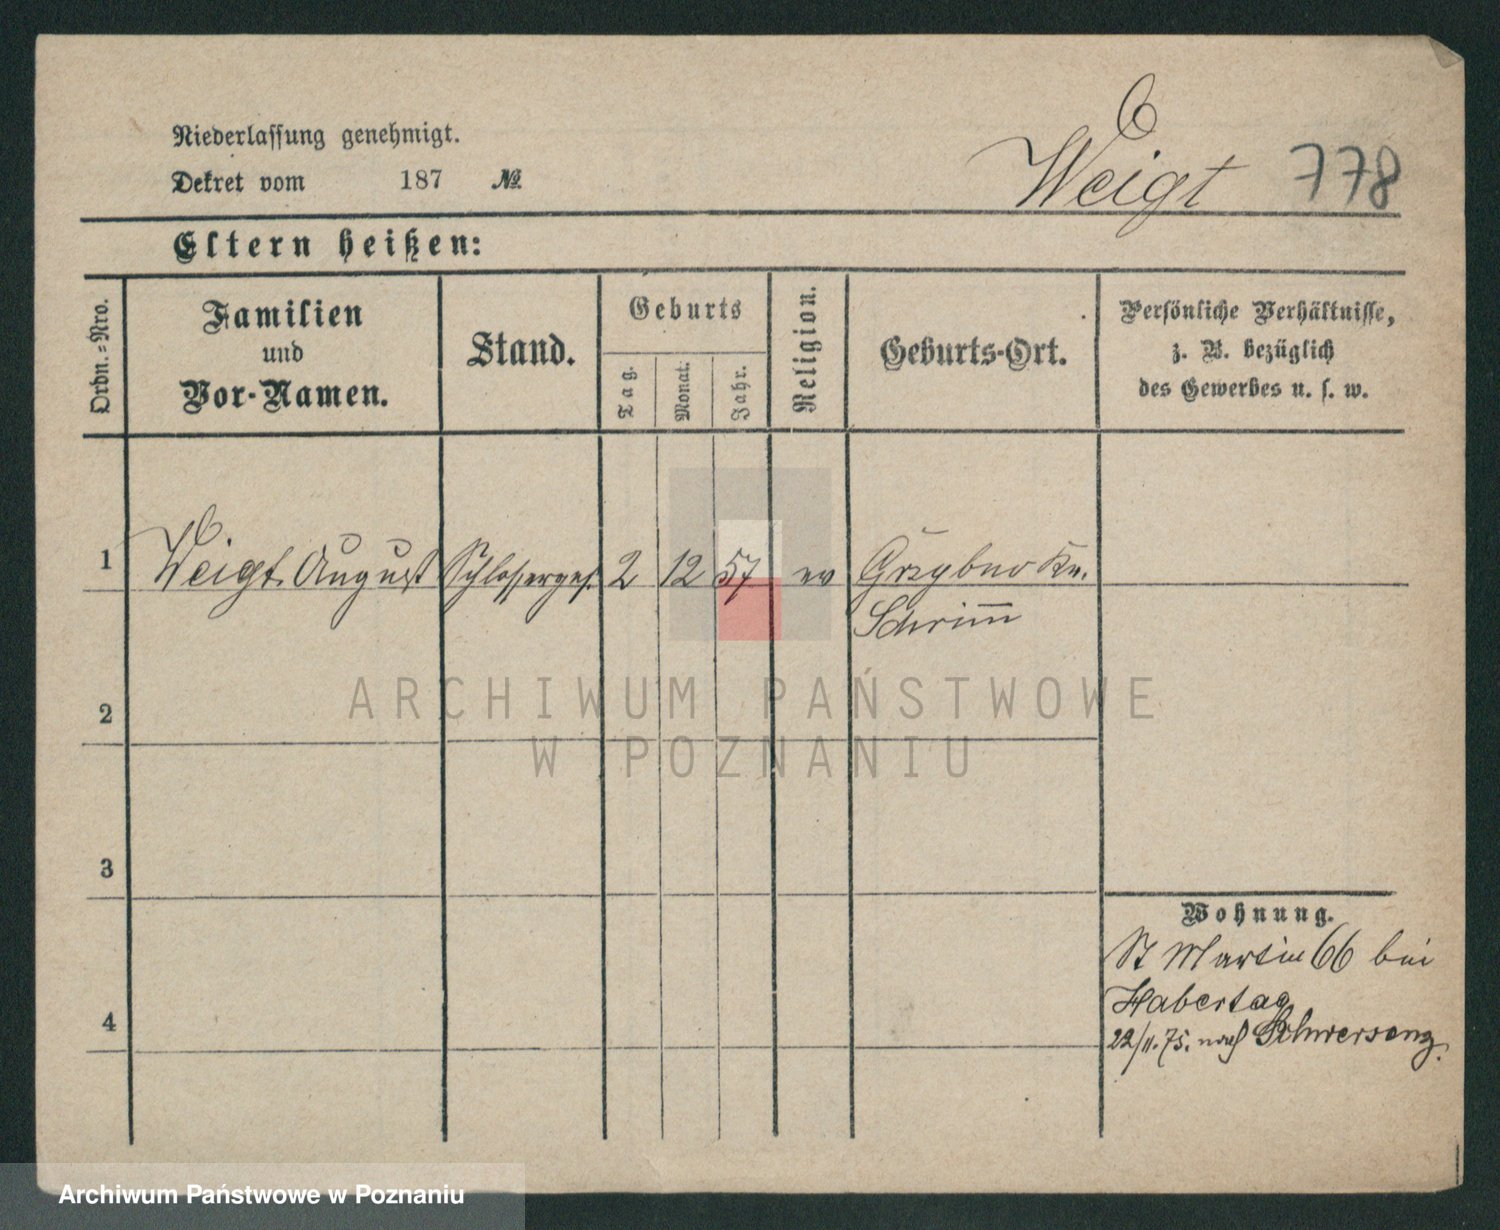 Niederlassung genehmigt.
Dekret vom 187 №
Weigt 778
Eltern heißen:
Ordn.-Nro.
Familien
und
Vor-Namen.
Stand.
Geburts
Tag.
Monat.
Jahr.
Religion.
Geburts-Ort.
Persönliche Verhältnisse,
z. B. bezüglich
des Gewerbes u. s. w.
1 Weigt August Schlosserges. 2 12 57 ev Grzybno Kr.
Schrimm
2
3
4
Wohnung.
St Martin 66 bei
Habertag
22/11.75. nach Schwersenz.
ARCHIWUM PAŃSTWOWE
W POZNANIU
Archiwum Państwowe w Poznaniu